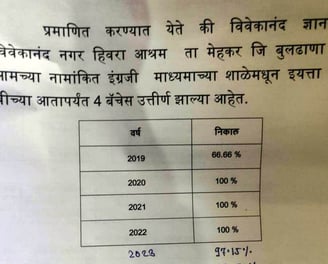 प्रमाणित करण्यात येते की विवेकानंद ज्ञान
विवेकानंद नगर हिवरा आश्रम ता मेहकर जि बुलढाणा
आमच्या नामांकित इंग्रजी माध्यमाच्या शाळेमधून इयत्ता
वीच्या आतापर्यंत 4 बॅचेस उत्तीर्ण झाल्या आहेत.
वर्ष निकाल
2019 66.66 %
2020 100 %
2021 100 %
2022 100 %
2023 97.15%